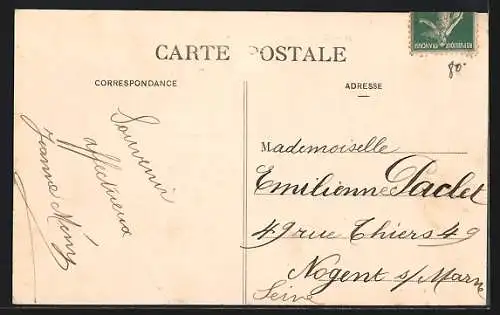 CARTE POSTALE
CORRESPONDANCE
Souvenir
affectueux
Jeanne Mény
ADRESSE
Mademoiselle
Emilienne Paclet
49 rue Thiers 49
Nogent s/ Marne
Seine
80.